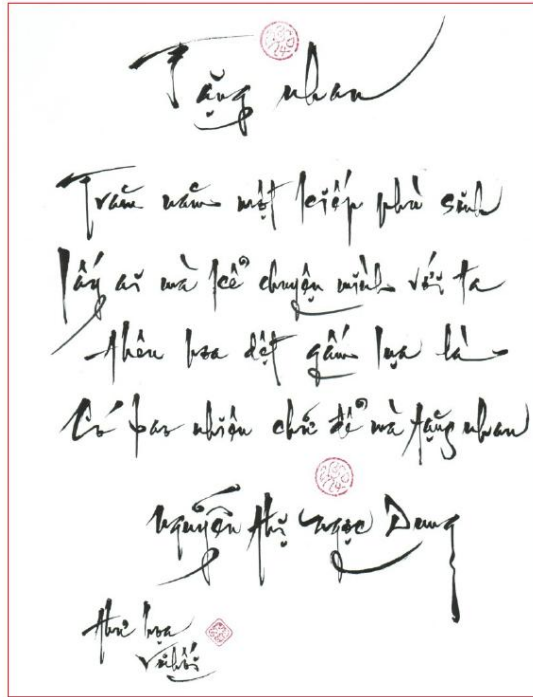 Tặng nhau
Trăm năm một kiếp phù sinh
lấy ai mà kể chuyện mình với ta
thêu hoa dệt gấm lụa là
Có bao nhiêu chữ để mà tặng nhau
Nguyễn thị Ngọc Dung
thư họa